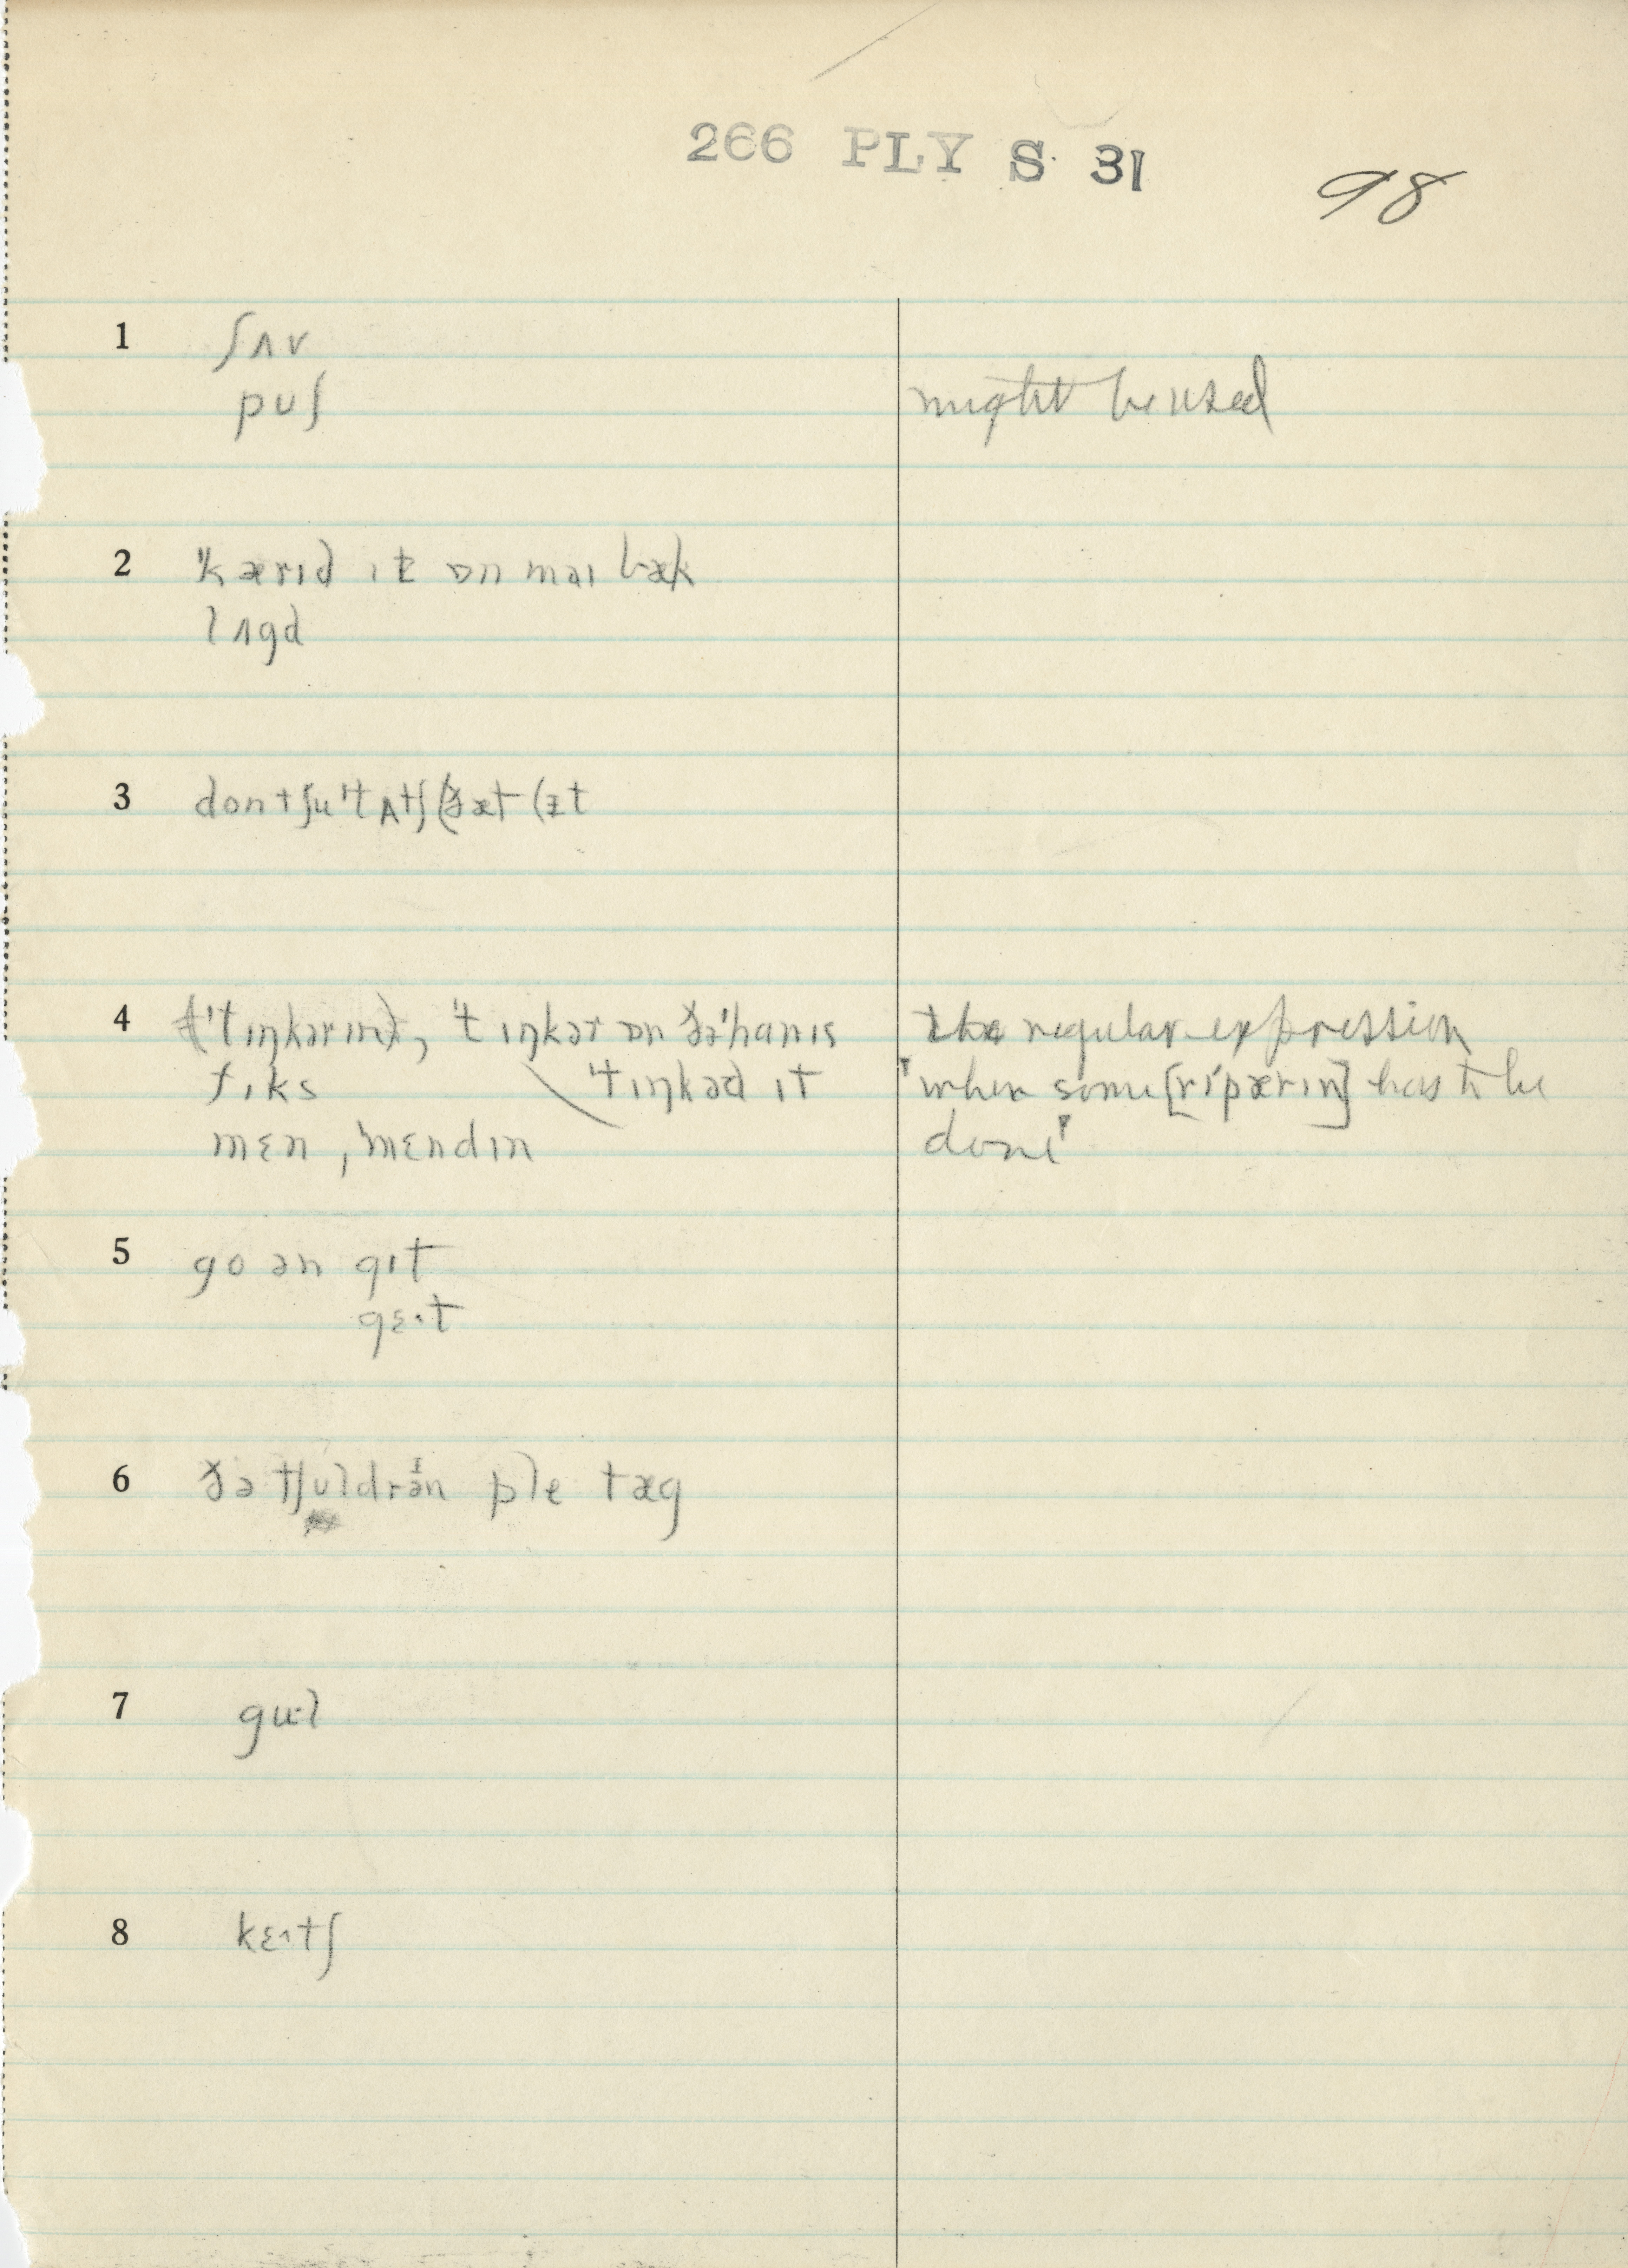 266 PLY S 31
98
1 ʃʌv
pʊʃ might be used
2 ˈkærɪd ɪt ɒn maɪ bæk
lʌgd
3 dontʃu ˈtʌtʃ (ðæt (ɪt
4 (ˈtɪŋkərɪn), ˈtɪŋkər ɒn ðə ˈhanɪs the regular expression
fɪks ˈtɪŋkəd ɪt "when some [rɪˈpærɪn] has to be
mɛn, ˈmɛndɪn done"
5 go ən gɪt
gɛ·t
6 ðə tʃʊldrən ple tæg
7 gu·l
8 kɛ·tʃ